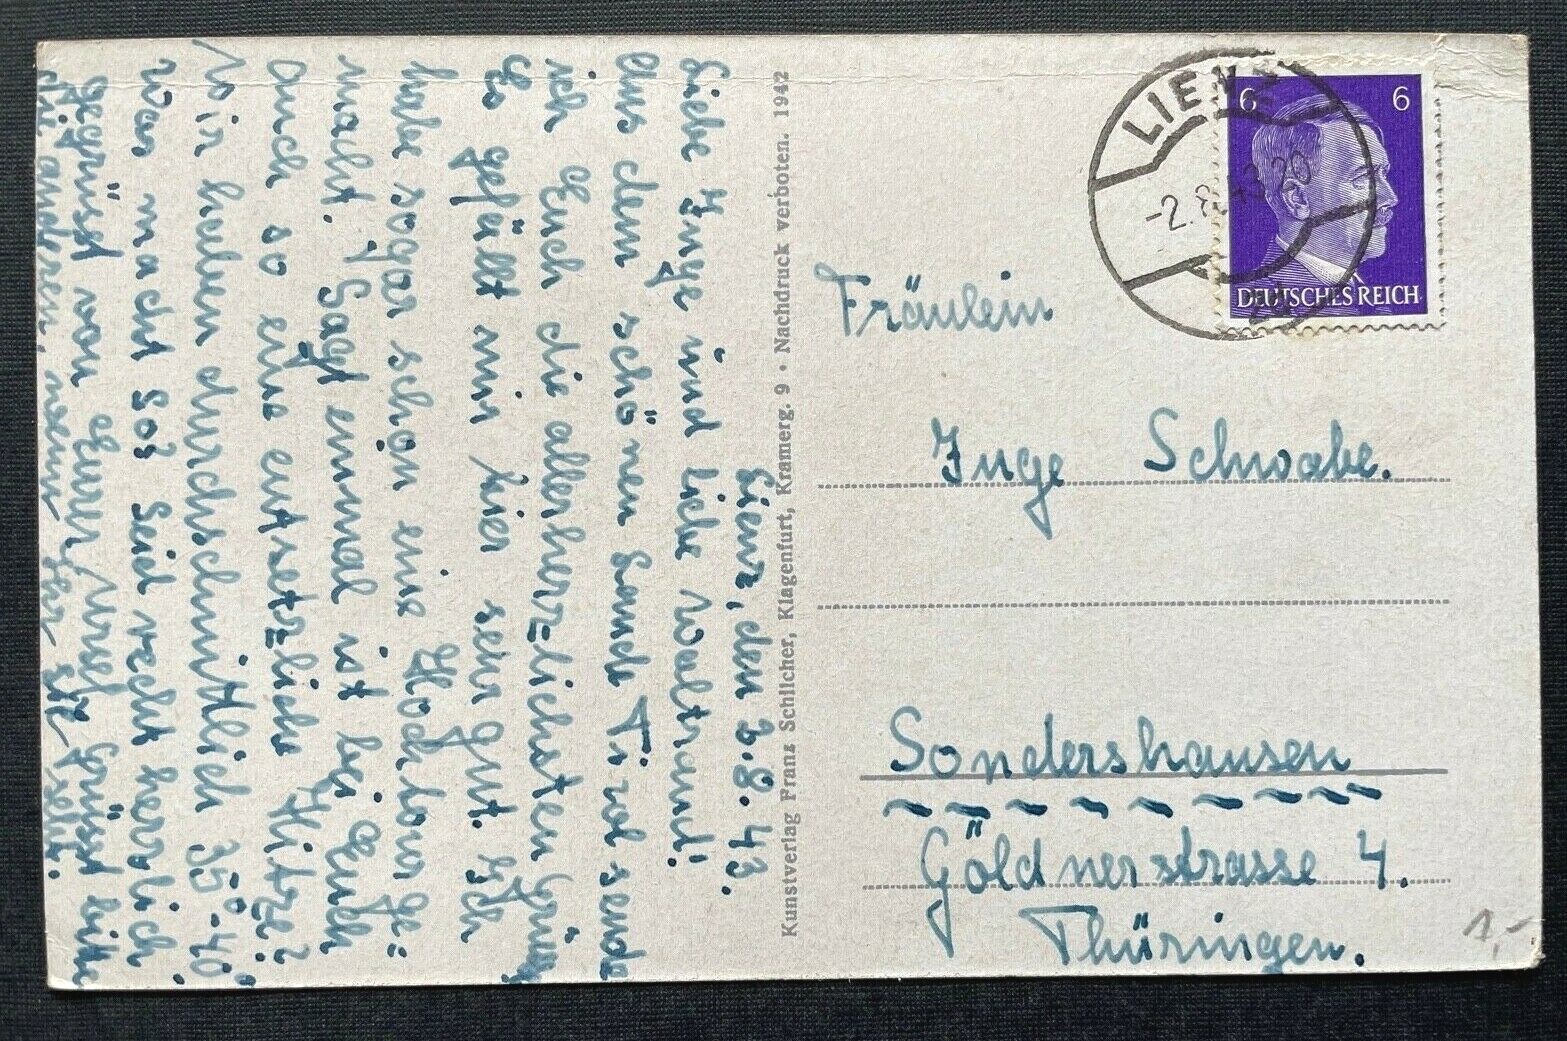 Lienz, den 2.8.43.
Liebe Inge und liebe Waltraud!
Aus dem schönen Lande Tirol sende
ich Euch die allerherz=lichsten Grüsse
Es gefällt mir hier sehr gut. Ich
habe sogar schon eine Hochtour ge=
macht. Sagt einmal ist bei Euch
auch so eine entsetzliche Hitze?
Wir haben durchschnittlich 35°-40°
Was macht Ihr so? Seid recht herzlich
gegrüsst von Eurer Ursel Grüsst bitte
die anderen, wenn Ihr sie seht.
Kunstverlag Franz Schilcher, Klagenfurt, Kramerg. 9 · Nachdruck verboten. 1942
LIENZ
-2.8.43.20
6 6
DEUTSCHES REICH
Fräulein
Inge Schwabe.
Sondershausen
Göldnerstrasse 4.
Thüringen.
1,-